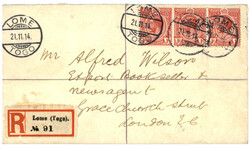 LOME
21.11.14.
TOGO
LOME
21.11.14.
TOGO
LOME
21.11.14.
TOGO
Mr Alfred Wilson
Export Bookseller &
newsagent
Gracechurch street
London E.C
R
Lome (Togo).
№ 91